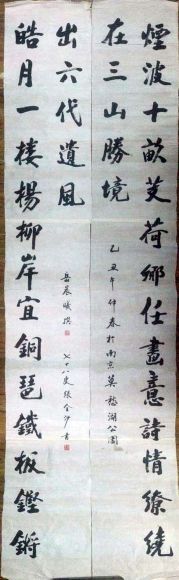 煙波十畝芰荷鄉任畫意詩情繚繞
在三山勝境
乙丑年仲春於南京莫愁湖公園
皓月一楼楊柳岸宜銅琶鐵板鏗鏘
出六代遺風
晨曦撰
七十八叟張全書